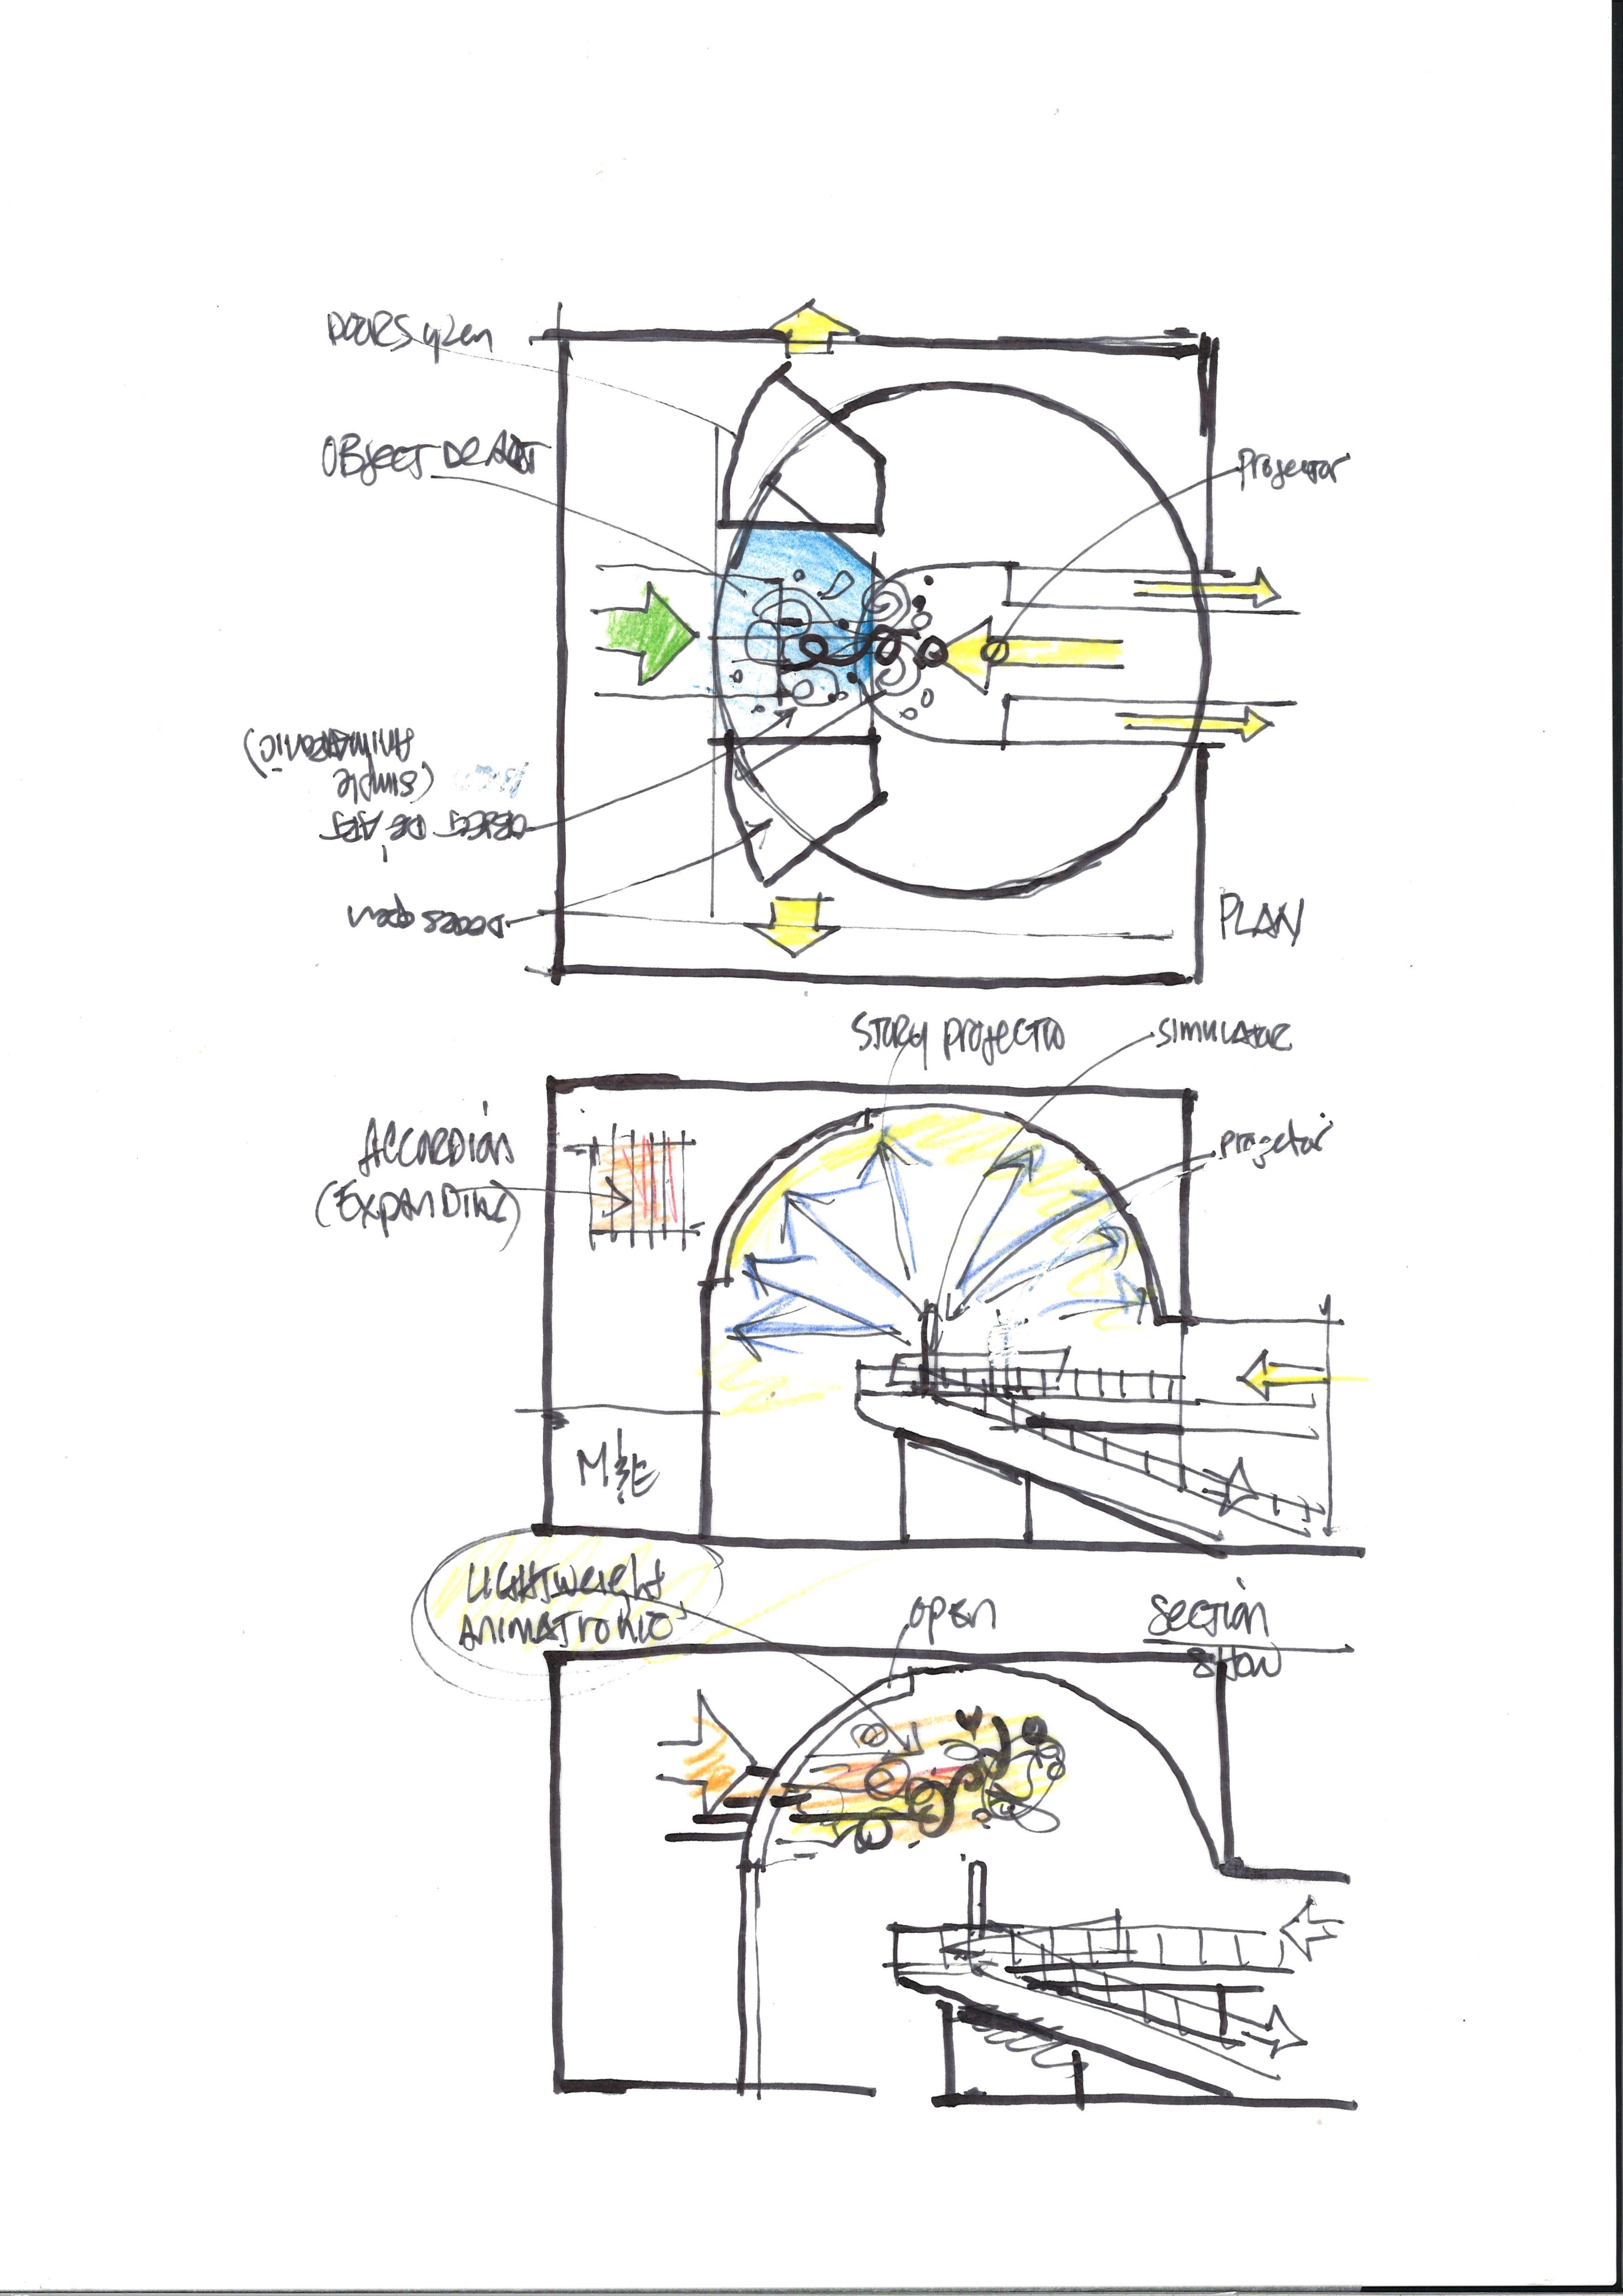 DOORS open
OBJECT DE ART
projector
(SIMPLE
ANIMATRONIC)
OBJECT DE ART
DOORS open
PLAN
STORY PROJECTIO
SIMULATOR
ACCORDIAN
(EXPANDING)
projector
M&E
LIGHTWEIGHT
ANIMATRONIC
OPEN
SECTION
SHOW